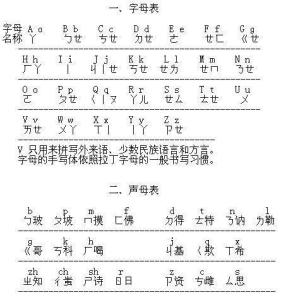 一、字母表
字母 A a B b C c D d E e F f G g
名称 ㄚ ㄅㄝ ㄘㄝ ㄉㄝ ㄜ ㄝㄈ ㄍㄝ
H h I i J j K k L l M m N n
ㄏㄚ ㄧ ㄐㄧㄝ ㄎㄝ ㄝㄌ ㄝㄇ ㄋㄝ
O o P p Q q R r S s T t U u
ㄛ ㄆㄝ ㄑㄧㄡ ㄚㄦ ㄝㄙ ㄊㄝ ㄨ
V v W w X x Y y Z z
ㄪㄝ ㄨㄚ ㄒㄧ ㄧㄚ ㄗㄝ
V 只用来拼写外来语、少数民族语言和方言。
字母的手写体依照拉丁字母的一般书写习惯。
二、声母表
b p m f d t n l
ㄅ玻 ㄆ坡 ㄇ摸 ㄈ佛 ㄉ得 ㄊ特 ㄋ讷 ㄌ勒
g k h j q x
ㄍ哥 ㄎ科 ㄏ喝 ㄐ基 ㄑ欺 ㄒ希
zh ch sh r z c s
ㄓ知 ㄔ蚩 ㄕ诗 ㄖ日 ㄗ资 ㄘ雌 ㄙ思